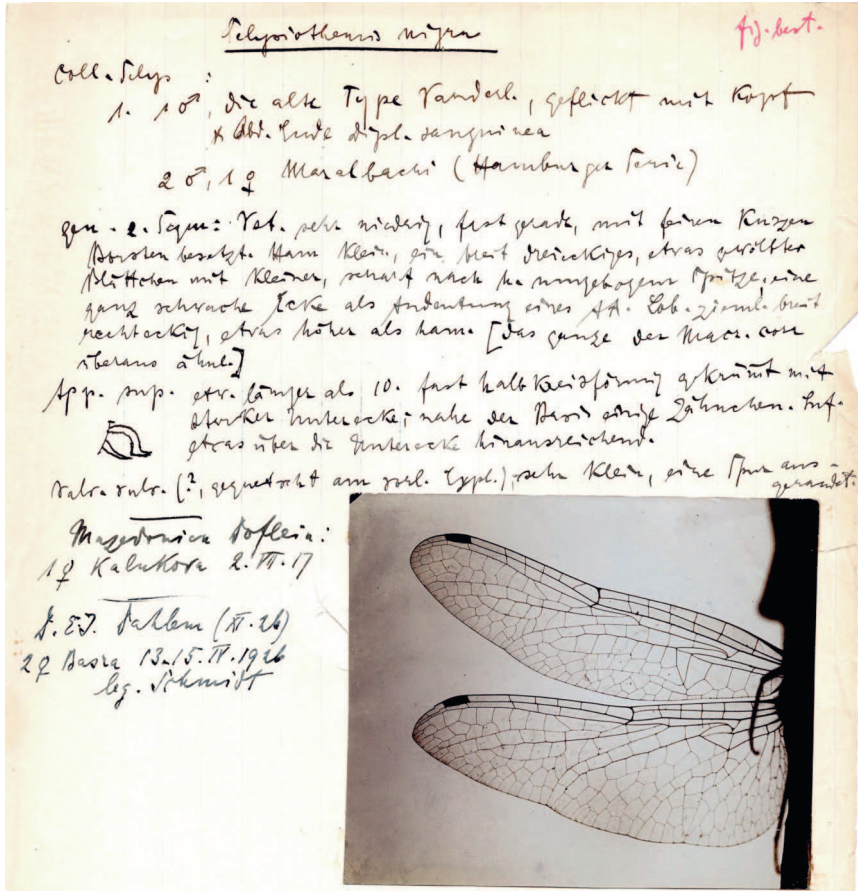 Selysiothemis nigra
fig. best.
Coll. Selys :
1. 1♂, die alte Type Vanderl., geflickt mit Kopf
& Abd. Ende dipl. sanguinea
2♂, 1♀ Maralbachi (Hamburger Serie)
gen. 2. Segm: Vet. sehr niedrig, fast gerade, mit feinen kurzen
Borsten besetzt. Ham klein, ein breit dreieckiges, etwas gewölbtes
Blättchen mit kleiner, scharf nach h. umgebogener Spitze, eine
ganz schwache Ecke als Andeutung eines AA. Lob. zieml. breit
rechteckig, etwas höher als ham. [das ganze der Macr.
überaus ähnl.]
App. sup. etw. länger als 10. fast halbkreisförmig gekrümmt mit
starker Unterecke; nahe der Basis einige Zähnchen. Inf.
etwas über die Unterecke hinausreichend.
Valv. vulv. (?, gequetscht am Expl.) sehr klein, eine Spur aus-
gerandet.
Mazedonien Doflein:
1♀ Kalukova 2.VII.17
D.E.I. Dahlem (XI.26)
2♀ Basra 13.15.IV.1926
leg. Schmidt